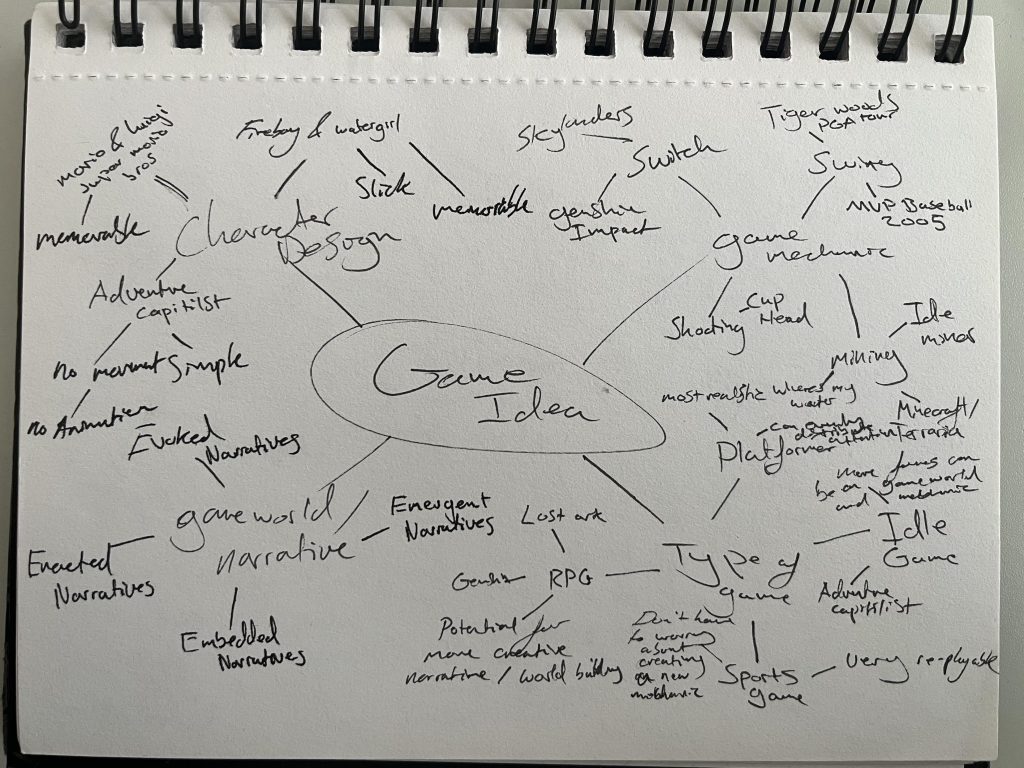 mario & luigi
super mario
bros
memorable
Fireboy & watergirl
Slick
memorable
Character
Design
Adventure
capitilist
no movment
Simple
no Animation
Skylanders
Switch
genshin
Impact
Tiger woods
PGA tour
Swing
MVP Baseball
2005
game
mechanic
Shooting
Cup
Head
Mining
Idle
miner
Minecraft/
Terraria
Game
Idea
most realistic wheres my
water
Platformer
attention
more focus can
be on gameworld
and
Idle
Game
Adventure
capitilist
Type of
game
Sports
game
Very re-playable
Don't have
to worry
about
creating
a new
mechanic
RPG
Lost ark
Genshin
Potential for
more creative
narrative / world building
gameworld
narrative
Evoked
Narratives
Enacted
Narratives
Embedded
Narratives
Emergent
Narratives